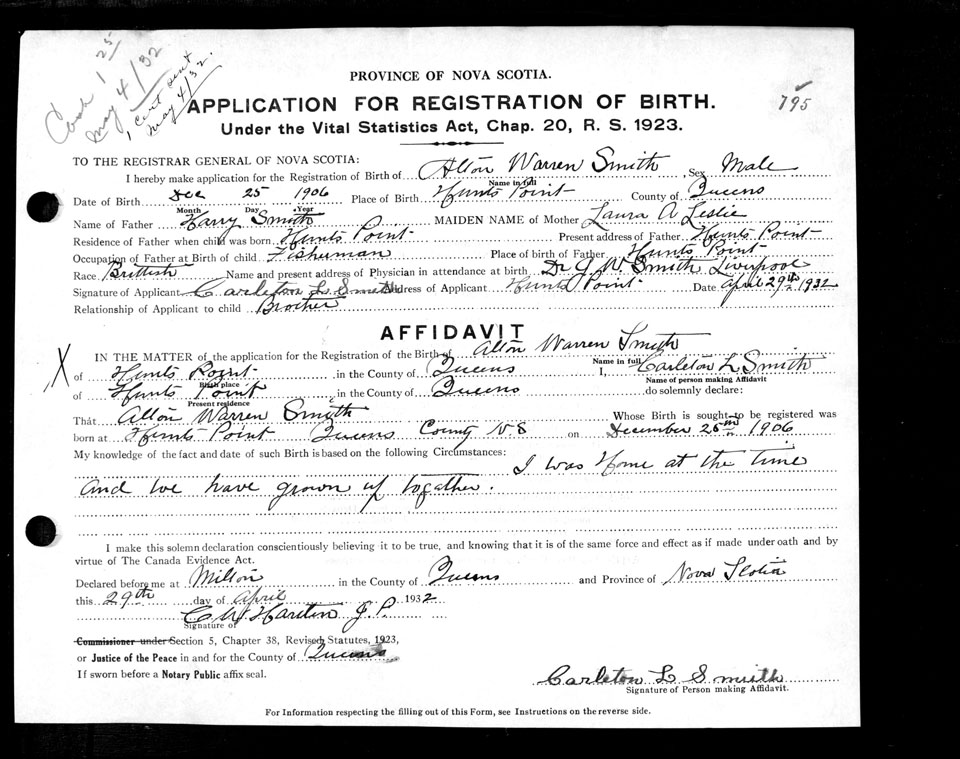 Cash 1 25
May 4/32
1 cert sent
May 4/32
795
PROVINCE OF NOVA SCOTIA.
APPLICATION FOR REGISTRATION OF BIRTH.
Under the Vital Statistics Act, Chap. 20, R. S. 1923.
TO THE REGISTRAR GENERAL OF NOVA SCOTIA:
I hereby make application for the Registration of Birth of Alton Warren Smith Sex Male
Name in full
Date of Birth Dec 25 1906 Place of Birth Hunts Point County of Queens
Month Day Year
Name of Father Harry Smith MAIDEN NAME of Mother Laura A Leslie
Residence of Father when child was born Hunts Point Present address of Father Hunts Point
Occupation of Father at Birth of child Fisherman Place of birth of Father Hunts Point
Race Brittish Name and present address of Physician in attendance at birth Dr J W Smith Liverpool
Signature of Applicant Carleton L Smith Address of Applicant Hunts Point Date April 29th 1932
Relationship of Applicant to child Brother
AFFIDAVIT
X
IN THE MATTER of the application for the Registration of the Birth of Alton Warren Smith
Name in full
of Hunts Point in the County of Queens I, Carleton L Smith
Birth place Name of person making Affidavit
of Hunts Point in the County of Queens do solemnly declare:
Present residence
That Alton Warren Smith Whose Birth is sought to be registered was
born at Hunts Point Queens County N S on December 25th 1906
My knowledge of the fact and date of such Birth is based on the following Circumstances: I was Home at the time
and we have grown up togather.
I make this solemn declaration conscientiously believing it to be true, and knowing that it is of the same force and effect as if made under oath and by
virtue of The Canada Evidence Act.
Declared before me at Milton in the County of Queens and Province of Nova Scotia
this 29th day of April 1932
C W Harden J. P.
Signature of
Commissioner under Section 5, Chapter 38, Revised Statutes, 1923,
or Justice of the Peace in and for the County of Queens
If sworn before a Notary Public affix seal.
Carleton L Smith
Signature of Person making Affidavit.
For Information respecting the filling out of this Form, see Instructions on the reverse side.